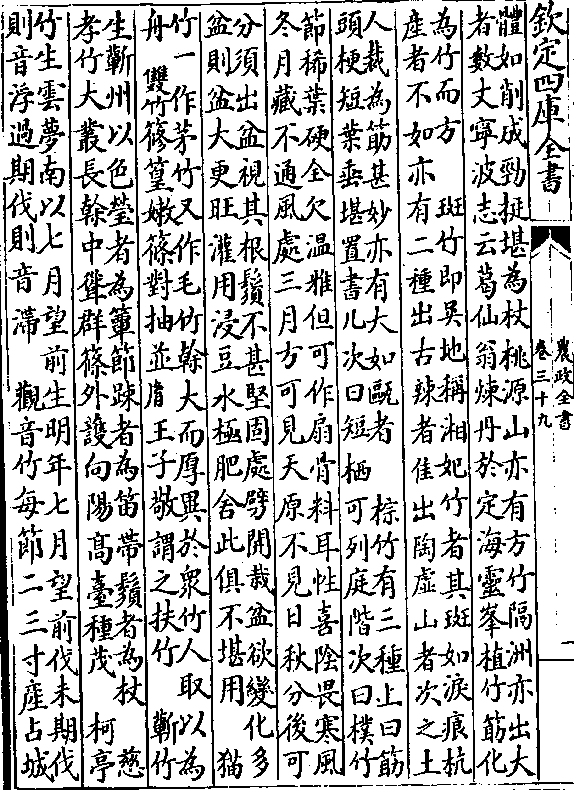 欽定四庫全書
農政全書
卷三十九
一
體如削成勁挺堪為杖桃源山亦有方竹隔洲亦出大
者數丈寧波志云葛仙翁煉丹於定海靈峯植竹筋化
為竹而方　斑竹即吳地稱湘妃竹者其斑如淚痕杭
產者不如亦有二種出古辣者佳出陶虛山者次之土
人裁為筋甚妙亦有大如甌者　棕竹有三種上曰筋
頭梗短葉垂堪置書几次曰短栖可列庭階次曰樸竹
節稀葉硬全欠溫雅但可作扇骨料耳性喜陰畏寒風
冬月藏不通風處三月方可見天原不見日秋分後可
分須出盆視其根鬚不甚堅固處劈開栽盆欲變化多
盆則盆大更旺灌用浸豆水極肥舍此俱不堪用　猫
竹一作茅竹又作毛竹幹大而厚異於衆竹人取以為
舟　雙竹篠篁嫩篠對抽並胤王子敬謂之扶竹　蘄竹
生蘄州以色瑩者為簟節踈者為笛帶鬚者為杖　慈
孝竹大叢長幹中聳群篠外護向陽高臺種茂　柯亭
竹生雲夢南以七月望前生明年七月望前伐未期伐
則音浮過期伐則音滯　觀音竹每節二三寸產占城